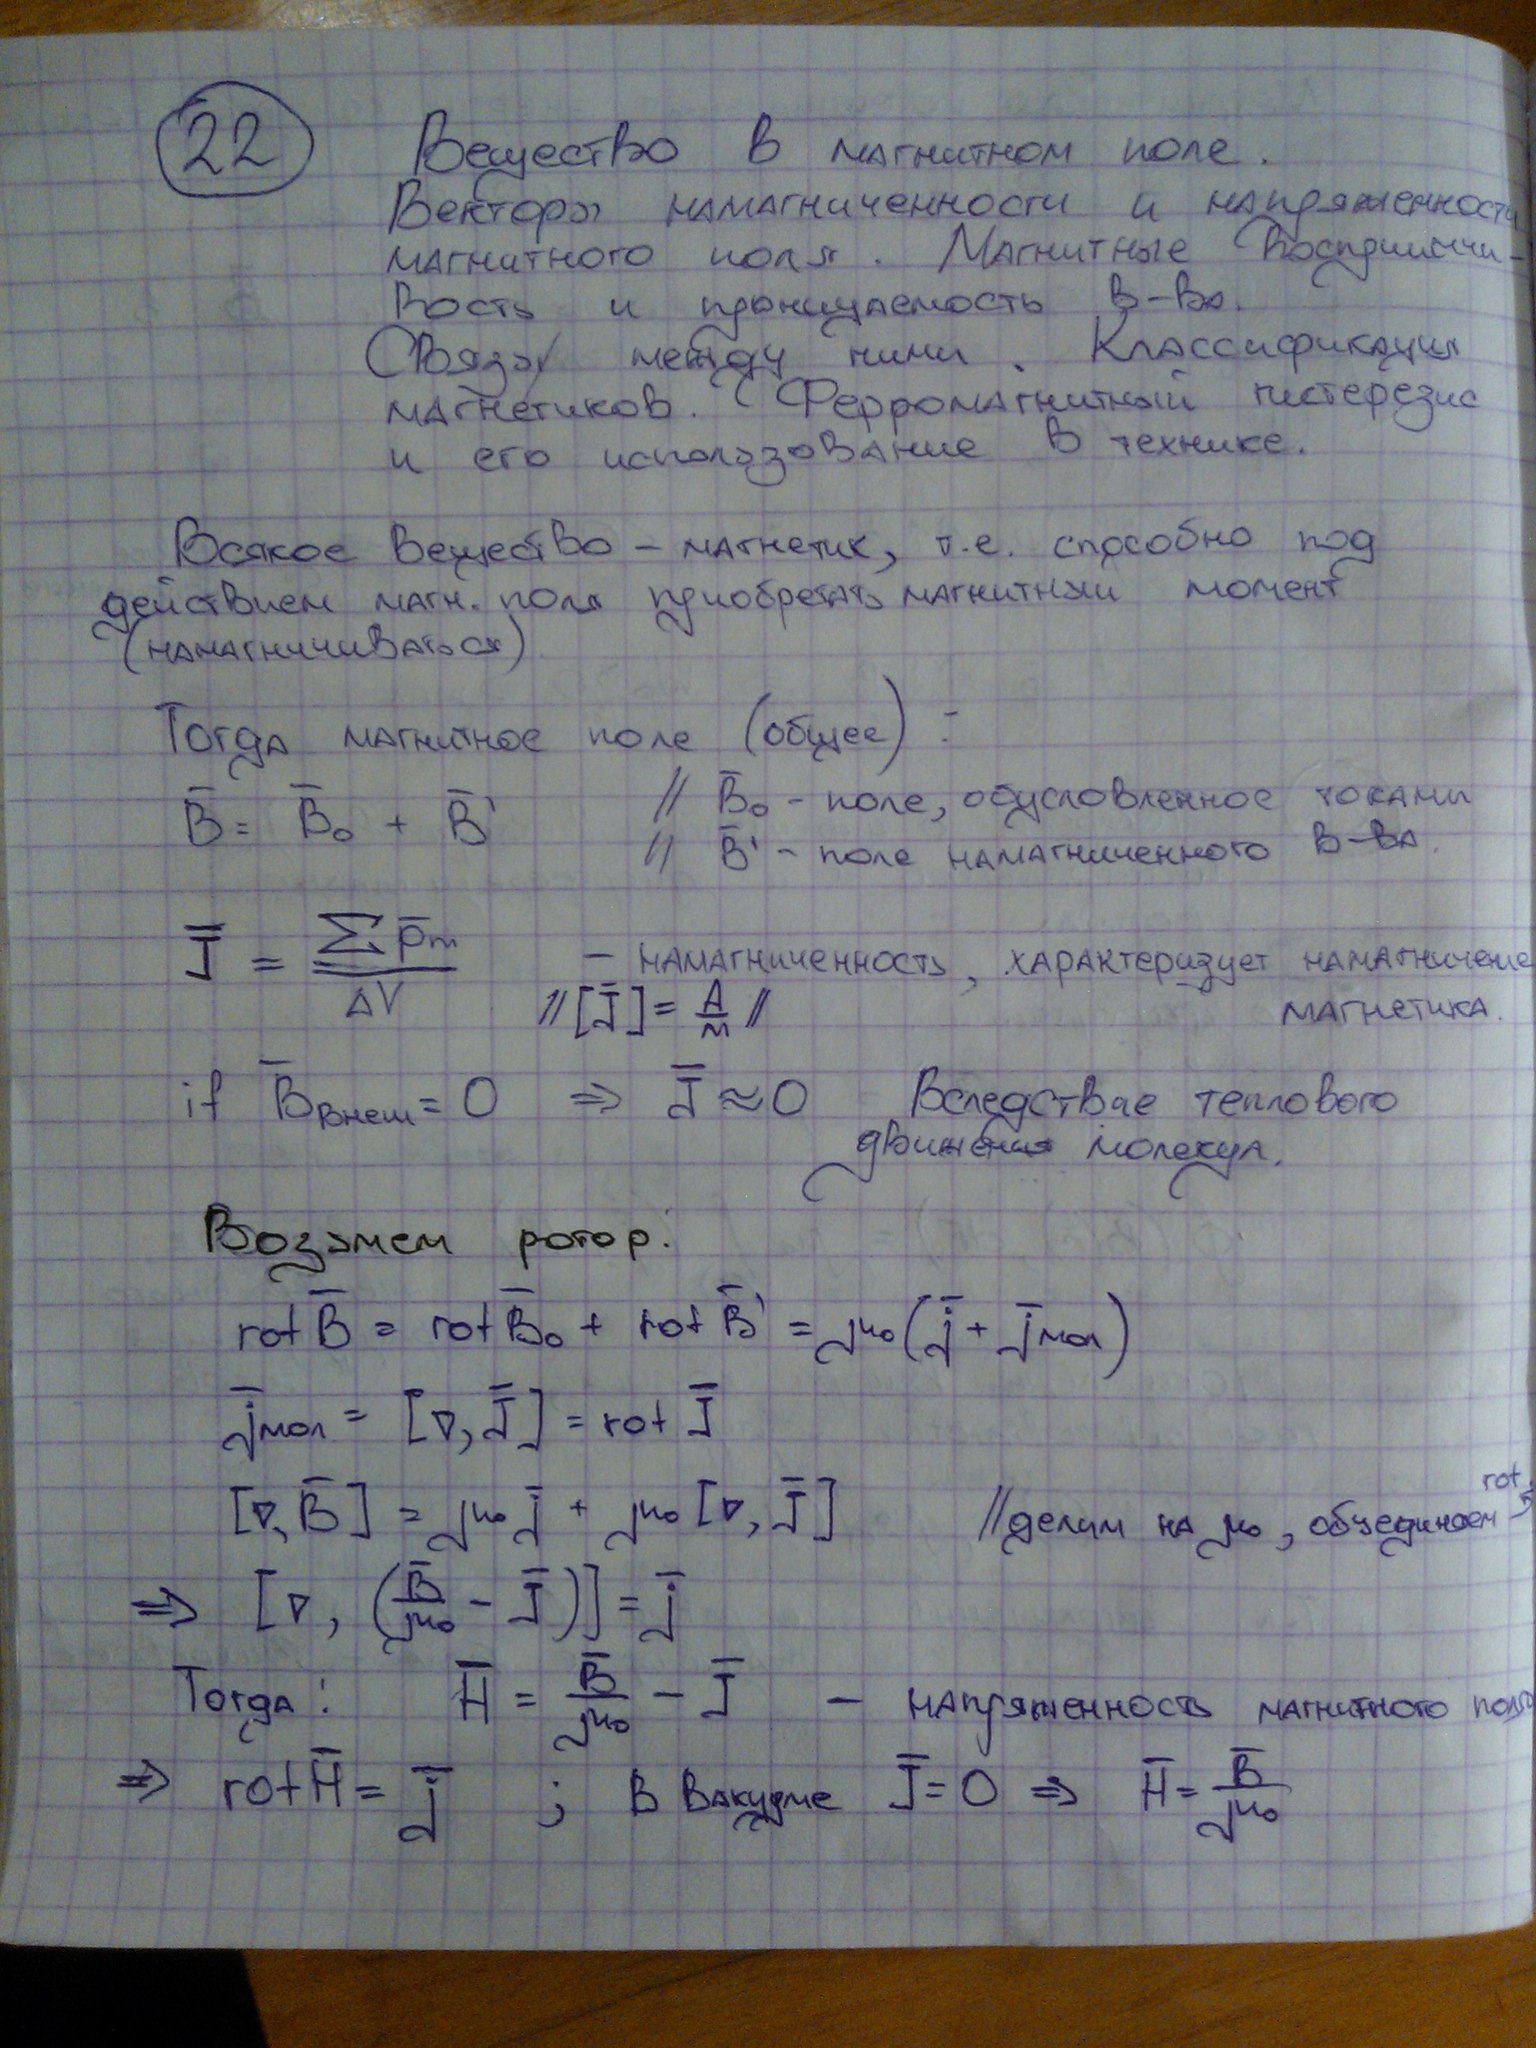 22
Вещество в магнитном поле.
Векторы намагниченности и напряженности
магнитного поля. Магнитные восприимчи-
вость и проницаемость в-ва.
Связь между ними. Классификация
магнетиков. Ферромагнитный гистерезис
и его использование в технике.
Всякое вещество – магнетик, т.е. способно под
действием магн. поля приобретать магнитный момент
(намагничиваться)
Тогда магнитное поле (общее):
B̅ = B̅₀ + B̅' // B̅₀ - поле, обусловленное токами
// B̅' - поле намагниченного в-ва.
J̅ = ∑p̅m / ΔV – намагниченность, характеризует намагничение
//[J̅] = А/м // магнетика.
if B̅внеш = 0 ⇒ J̅ ≈ 0 Вследствие теплового
движения молекул.
Возьмем ротор:
rot B̅ = rot B̅₀ + rot B̅' = μ₀(j̅ + j̅мол)
j̅мол = [∇, J̅] = rot J̅
[∇, B̅] = μ₀ j̅ + μ₀ [∇, J̅] //делим на μ₀, объединяем rot
⇒ [∇, (B̅/μ₀ - J̅)] = j̅
Тогда: H̅ = B̅/μ₀ - J̅ – напряженность магнитного поля
⇒ rot H̅ = j̅ ; в вакууме J̅ = 0 ⇒ H̅ = B̅/μ₀